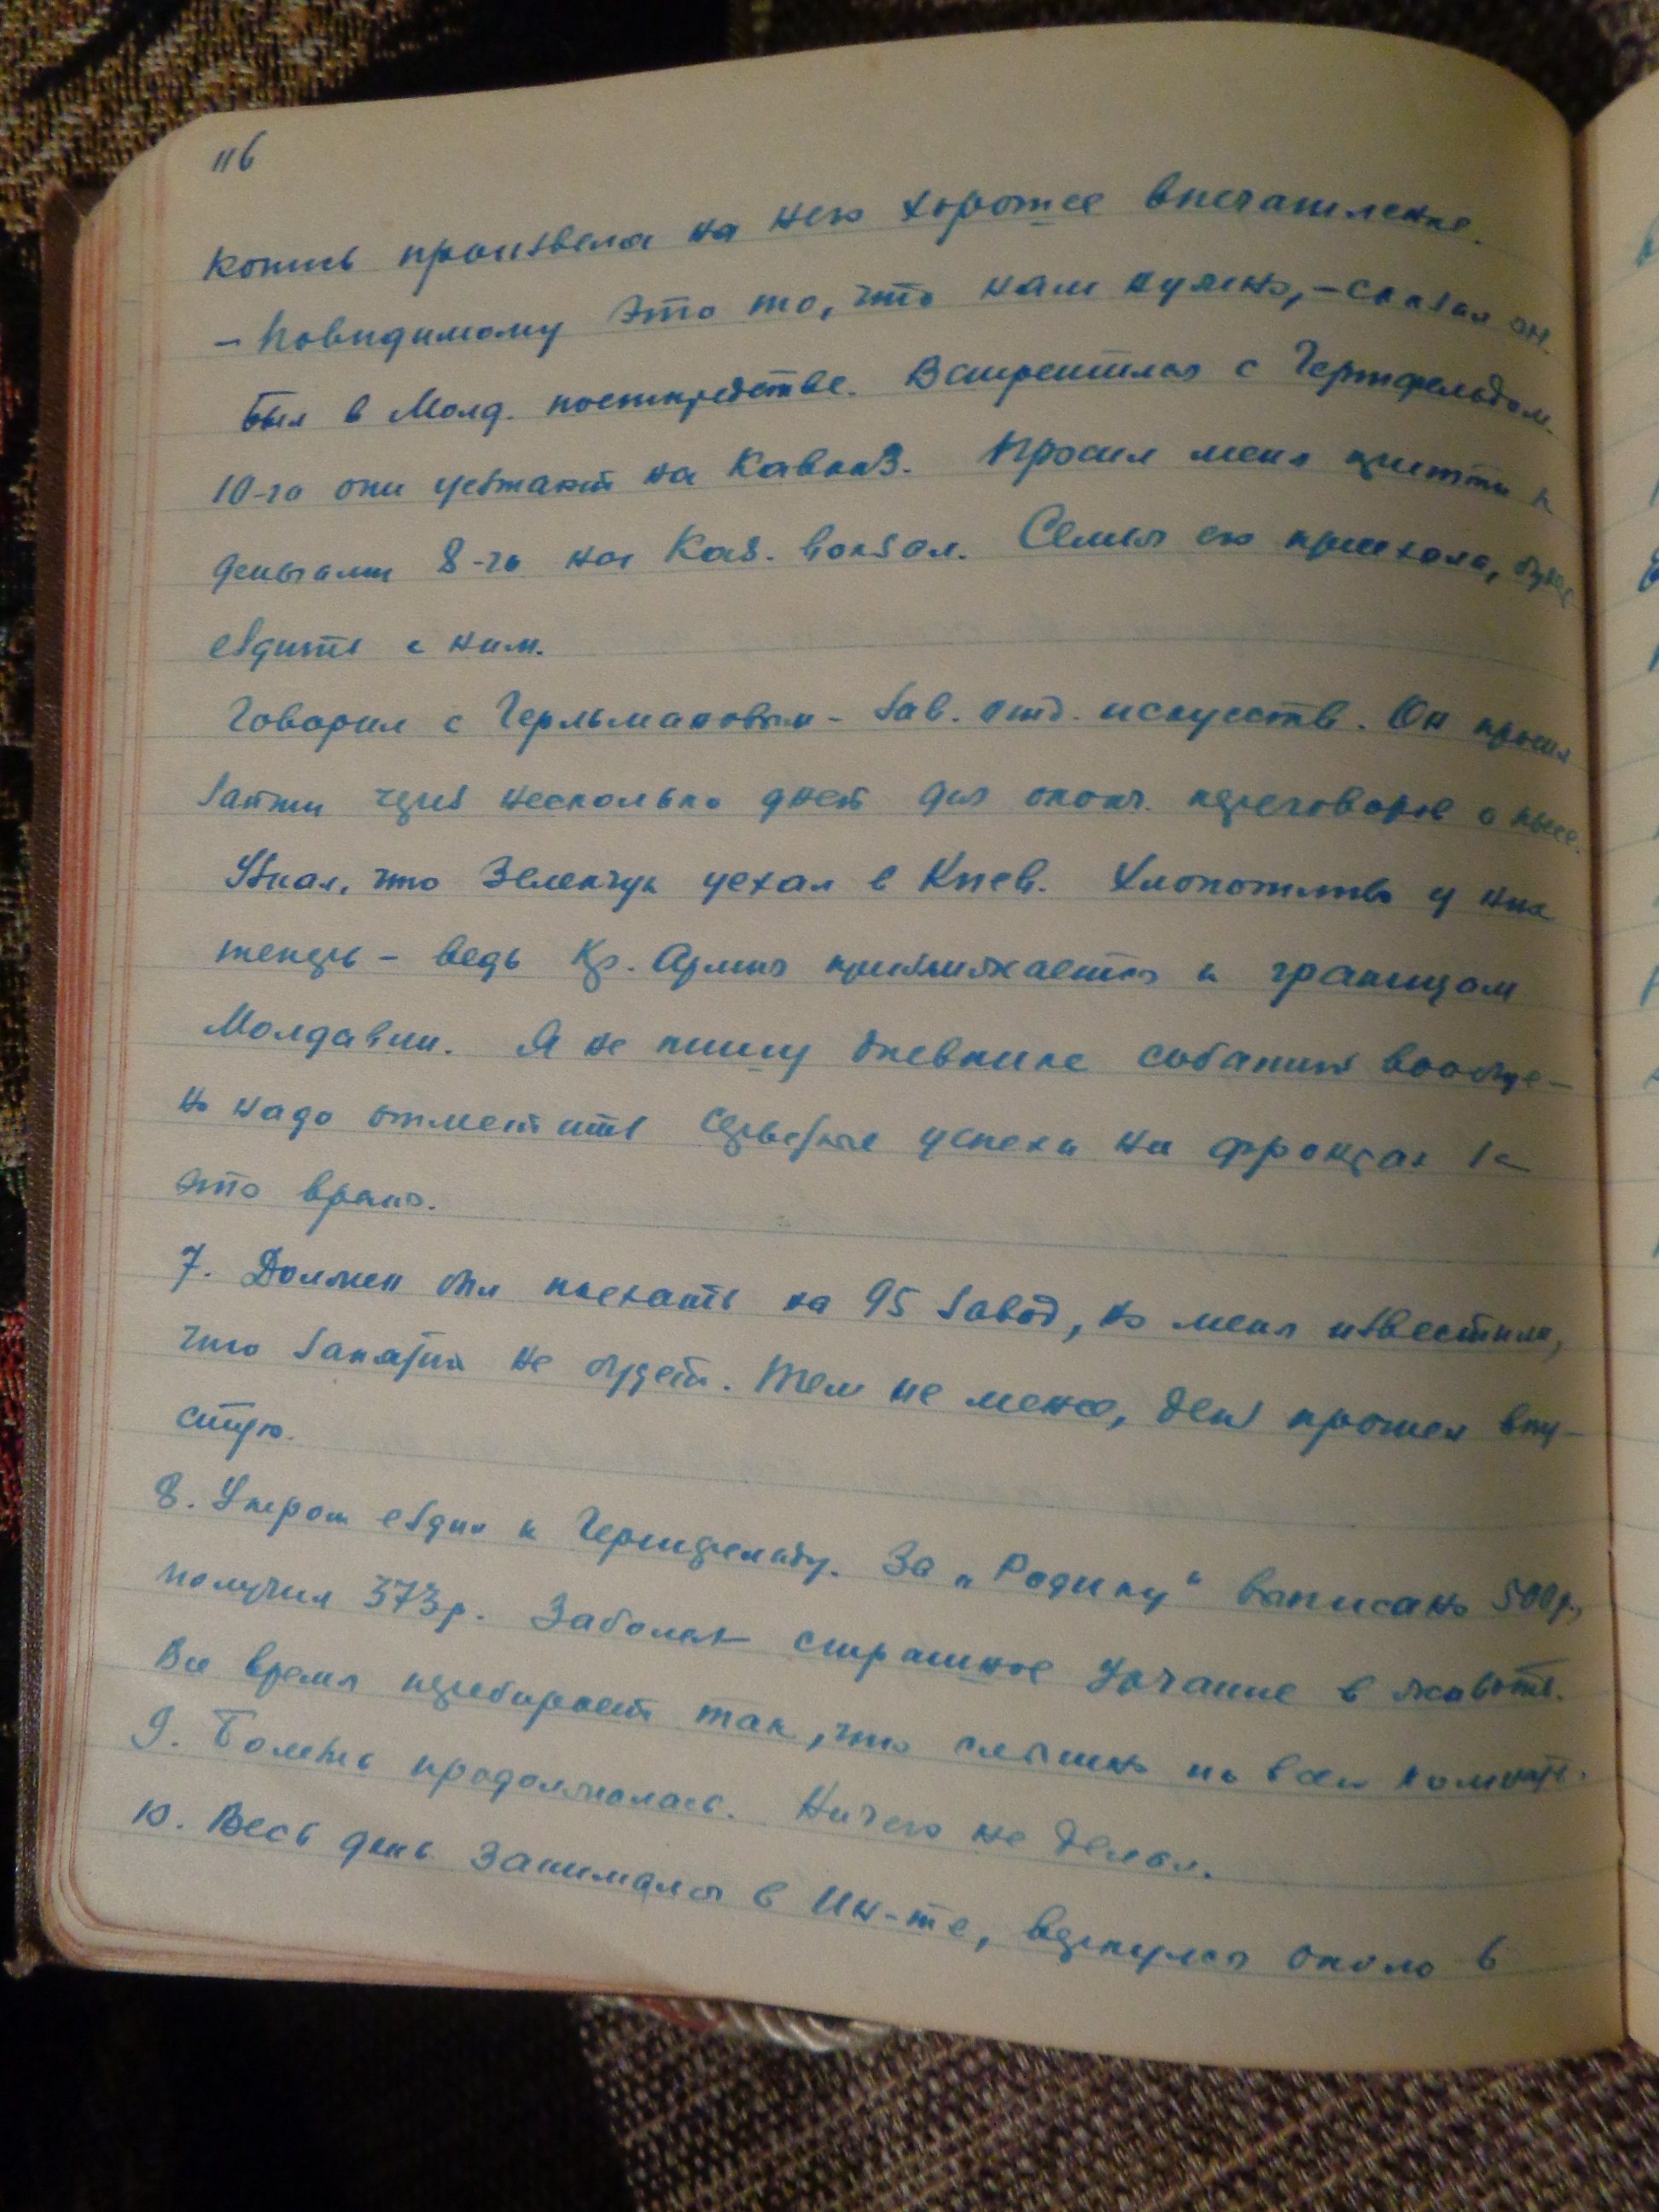 116
копись произвела на него хорошее впечатление.
– Повидимому это то, что нам нужно, – сказал он.
Был в Молд. постпредстве. Встретился с Гертфельдом.
10-го они уезжают на Кавказ. Просил меня притти с
деньгами 8-го на Каз. вокзал. Семья его приехала, будет
ездить с ним.
Говорил с Герльмановым – зав. отд. искусств. Он просил
зайти через несколько дней для оконч. переговоров о пьесе.
Узнал, что Зеленчук уехал в Киев. Хлопотливо у них
теперь – ведь Кр. Армия приближается к границам
Молдавии. Я не пишу дневнике события вообще –
но надо отметить серьезные успехи на фронтах за
это время.
7. Должен был поехать на 95 завод, но меня известили,
что занятий не будет. Тем не менее, день прошел впу-
стую.
8. Утром ездил к Гертфельду. За „Родину" выписано 500 р.,
получил 373 р. Заболел страшное урчание в животе.
Все время перебирает так, что слышно по всей комнате.
9. Болезнь продолжалась. Ничего не делал.
10. Весь день занимался в Ин-те, вернулся около 6